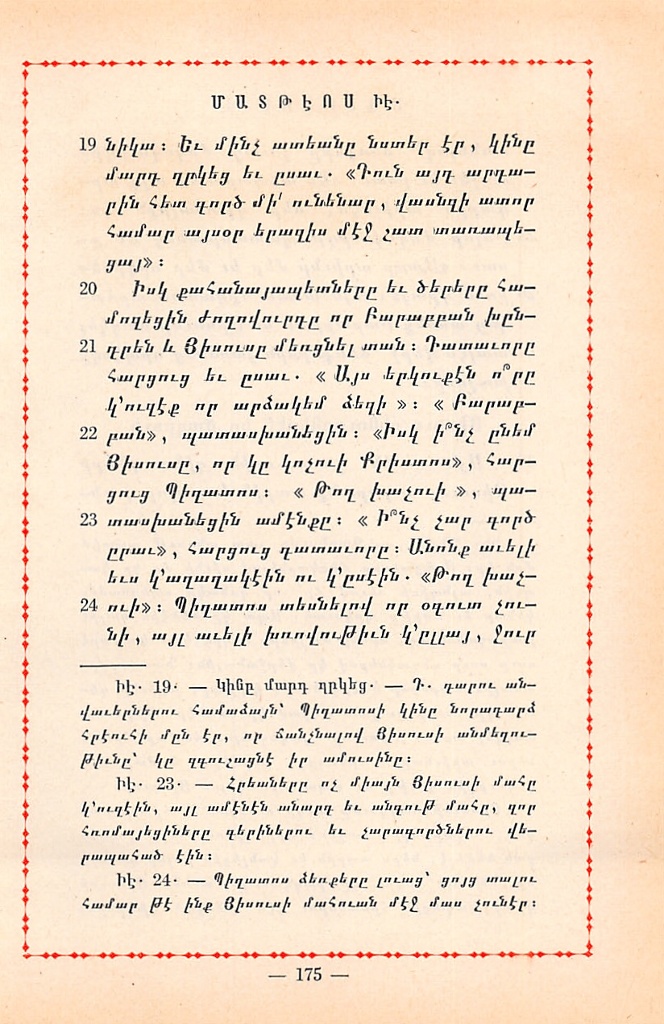 ՄԱՏԹԷՈՍ ԻԷ.
19 նիկա։ Եւ մինչ ատեանը նստեր էր, կինը
մարդ ղրկեց եւ ըսաւ. «Դուն այդ արդա–
րին հետ գործ մի՛ ունենար, վասնզի ատոր
համար այսօր երազիս մէջ շատ տառապե–
ցայ»։
20 Իսկ քահանայապետները եւ ծերերը հա–
մոզեցին ժողովուրդը որ Բարաբբան խըն–
21 դրեն և Յիսուսը մեռցնել տան։ Դատաւորը
հարցուց եւ ըսաւ. « Այս երկուքէն ո՞րը
կ՚ուզէք որ արձակեմ ձեզի »։ « Բարաբ–
22 բան», պատասխանեցին։ «Իսկ ի՞նչ ընեմ
Յիսուսը, որ կը կոչուի Քրիստոս», հար–
ցուց Պիղատոս։ « Թող խաչուի », պա–
23 տասխանեցին ամէնքը։ « Ի՞նչ չար գործ
ըրաւ», հարցուց դատաւորը։ Անոնք աւելի
եւս կ՚աղաղակէին ու կ՚ըսէին. «Թող խաչ–
24 ուի»։ Պիղատոս տեսնելով որ օգուտ չու–
նի, այլ աւելի խռովութիւն կ՚ըլլայ, ջուր
ԻԷ. 19. — Կինը մարդ ղրկեց. — Դ. դարու ան–
վաւերներու համաձայն՝ Պիղատոսի կինը նորադարձ
հրէուհի մըն էր, որ ճանչնալով Յիսուսի անմեղու–
թիւնը՝ կը զգուշացնէ իր ամուսինը։
ԻԷ. 23. — Հրեաները ոչ միայն Յիսուսի մահը
կ՚ուզէին, այլ ամէնէն անարգ եւ անգութ մահը, զոր
Հռոմայեցիները գերիներու եւ չարագործներու վե–
րապահած էին։
ԻԷ. 24. — Պիղատոս ձեռքերը լուաց՝ ցոյց տալու
համար թէ ինք Յիսուսի մահուան մէջ մաս չունէր։
— 175 —